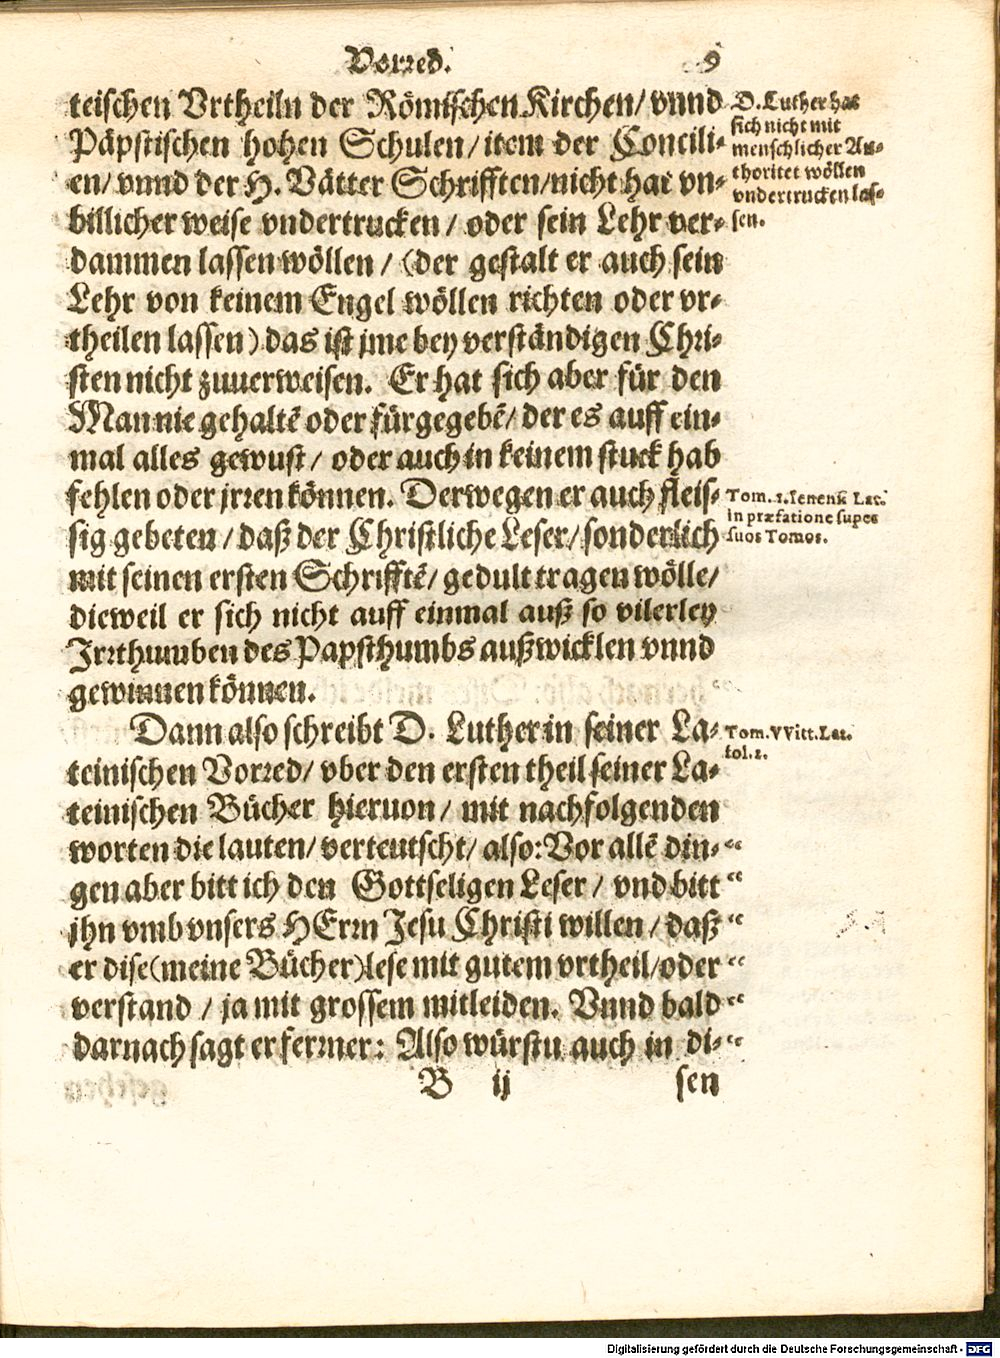 Vorred. 9
teischen Vrtheiln der Römischen Kirchen/ vnnd
Päpstischen hohen Schulen/ item der Concili-
en/ vnnd der H. Vätter Schrifften/ nicht hat vn-
billicher weise vndertrucken/ oder sein Lehr ver-
dammen lassen wöllen/ (der gestalt er auch sein
Lehr von keinem Engel wöllen richten oder vr-
theilen lassen) das ist jme bey verständigen Chri-
sten nicht zuuerweisen. Er hat sich aber für den
Man nie gehaltē oder fürgegebē/ der es auff ein-
mal alles gewust/ oder auch in keinem stuck hab
fehlen oder jrren können. Derwegen er auch fleis-
sig gebeten/ daß der Christliche Leser/ sonderlich
mit seinen ersten Schrifftē/ gedult tragen wölle/
dieweil er sich nicht auff einmal auß so vilerley
Jrrthumben des Papsthumbs außwicklen vnnd
gewinnen können.
Dann also schreibt D. Luther in seiner La-
teinischen Vorred/ vber den ersten theil seiner La-
teinischen Bücher hieruon/ mit nachfolgenden
worten die lauten/ verteutscht/ also: Vor allē din- "
gen aber bitt ich den Gottseligen Leser/ vnd bitt "
jhn vmb vnsers HErrn Jesu Christi willen/ daß "
er dise (meine Bücher) lese mit gutem vrtheil/ oder "
verstand/ ja mit grossem mitleiden. Vnnd bald "
darnach sagt er ferrner: Also würstu auch in di- "
B ij sen
D. Luther hat
sich nicht mit
menschlicher Au-
thoritet wöllen
vndertrucken las-
sen.
Tom. 1. Ienens. Lat.
in præfatione super
suos Tomos.
Tom. VVitt. Lat.
fol. 1.
Digitalisierung gefördert durch die Deutsche Forschungsgemeinschaft - DFG